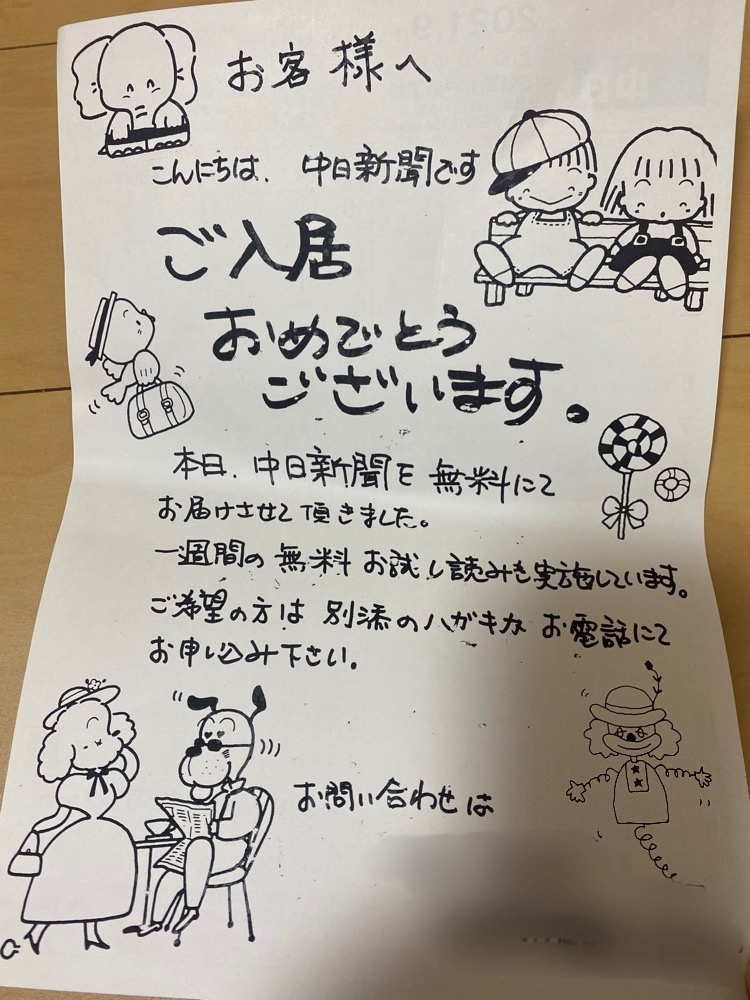 お客様へ
こんにちは、中日新聞です
ご入居
おめでとう
ございます。
本日、中日新聞を無料にて
お届けさせて頂きました。
一週間の無料お試し読みも実施しています。
ご希望の方は別添のハガキな お電話にて
お申し込み下さい。
お問い合わせは